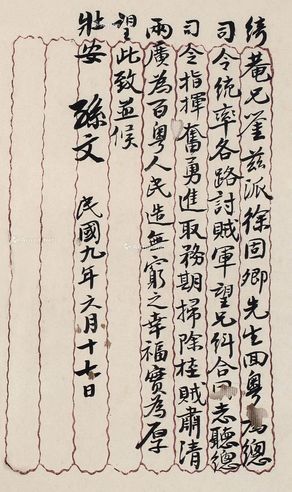 绮菴兄鉴兹派徐固卿先生回粤为總
司令統率各路討賊軍望兄糾合同志聽總
司令指揮奮勇進取務期掃除桂賊肅清
兩廣為百粤人民造無窮之幸福實為厚
望此致並候
壯安　孫文　民國九年六月十七日